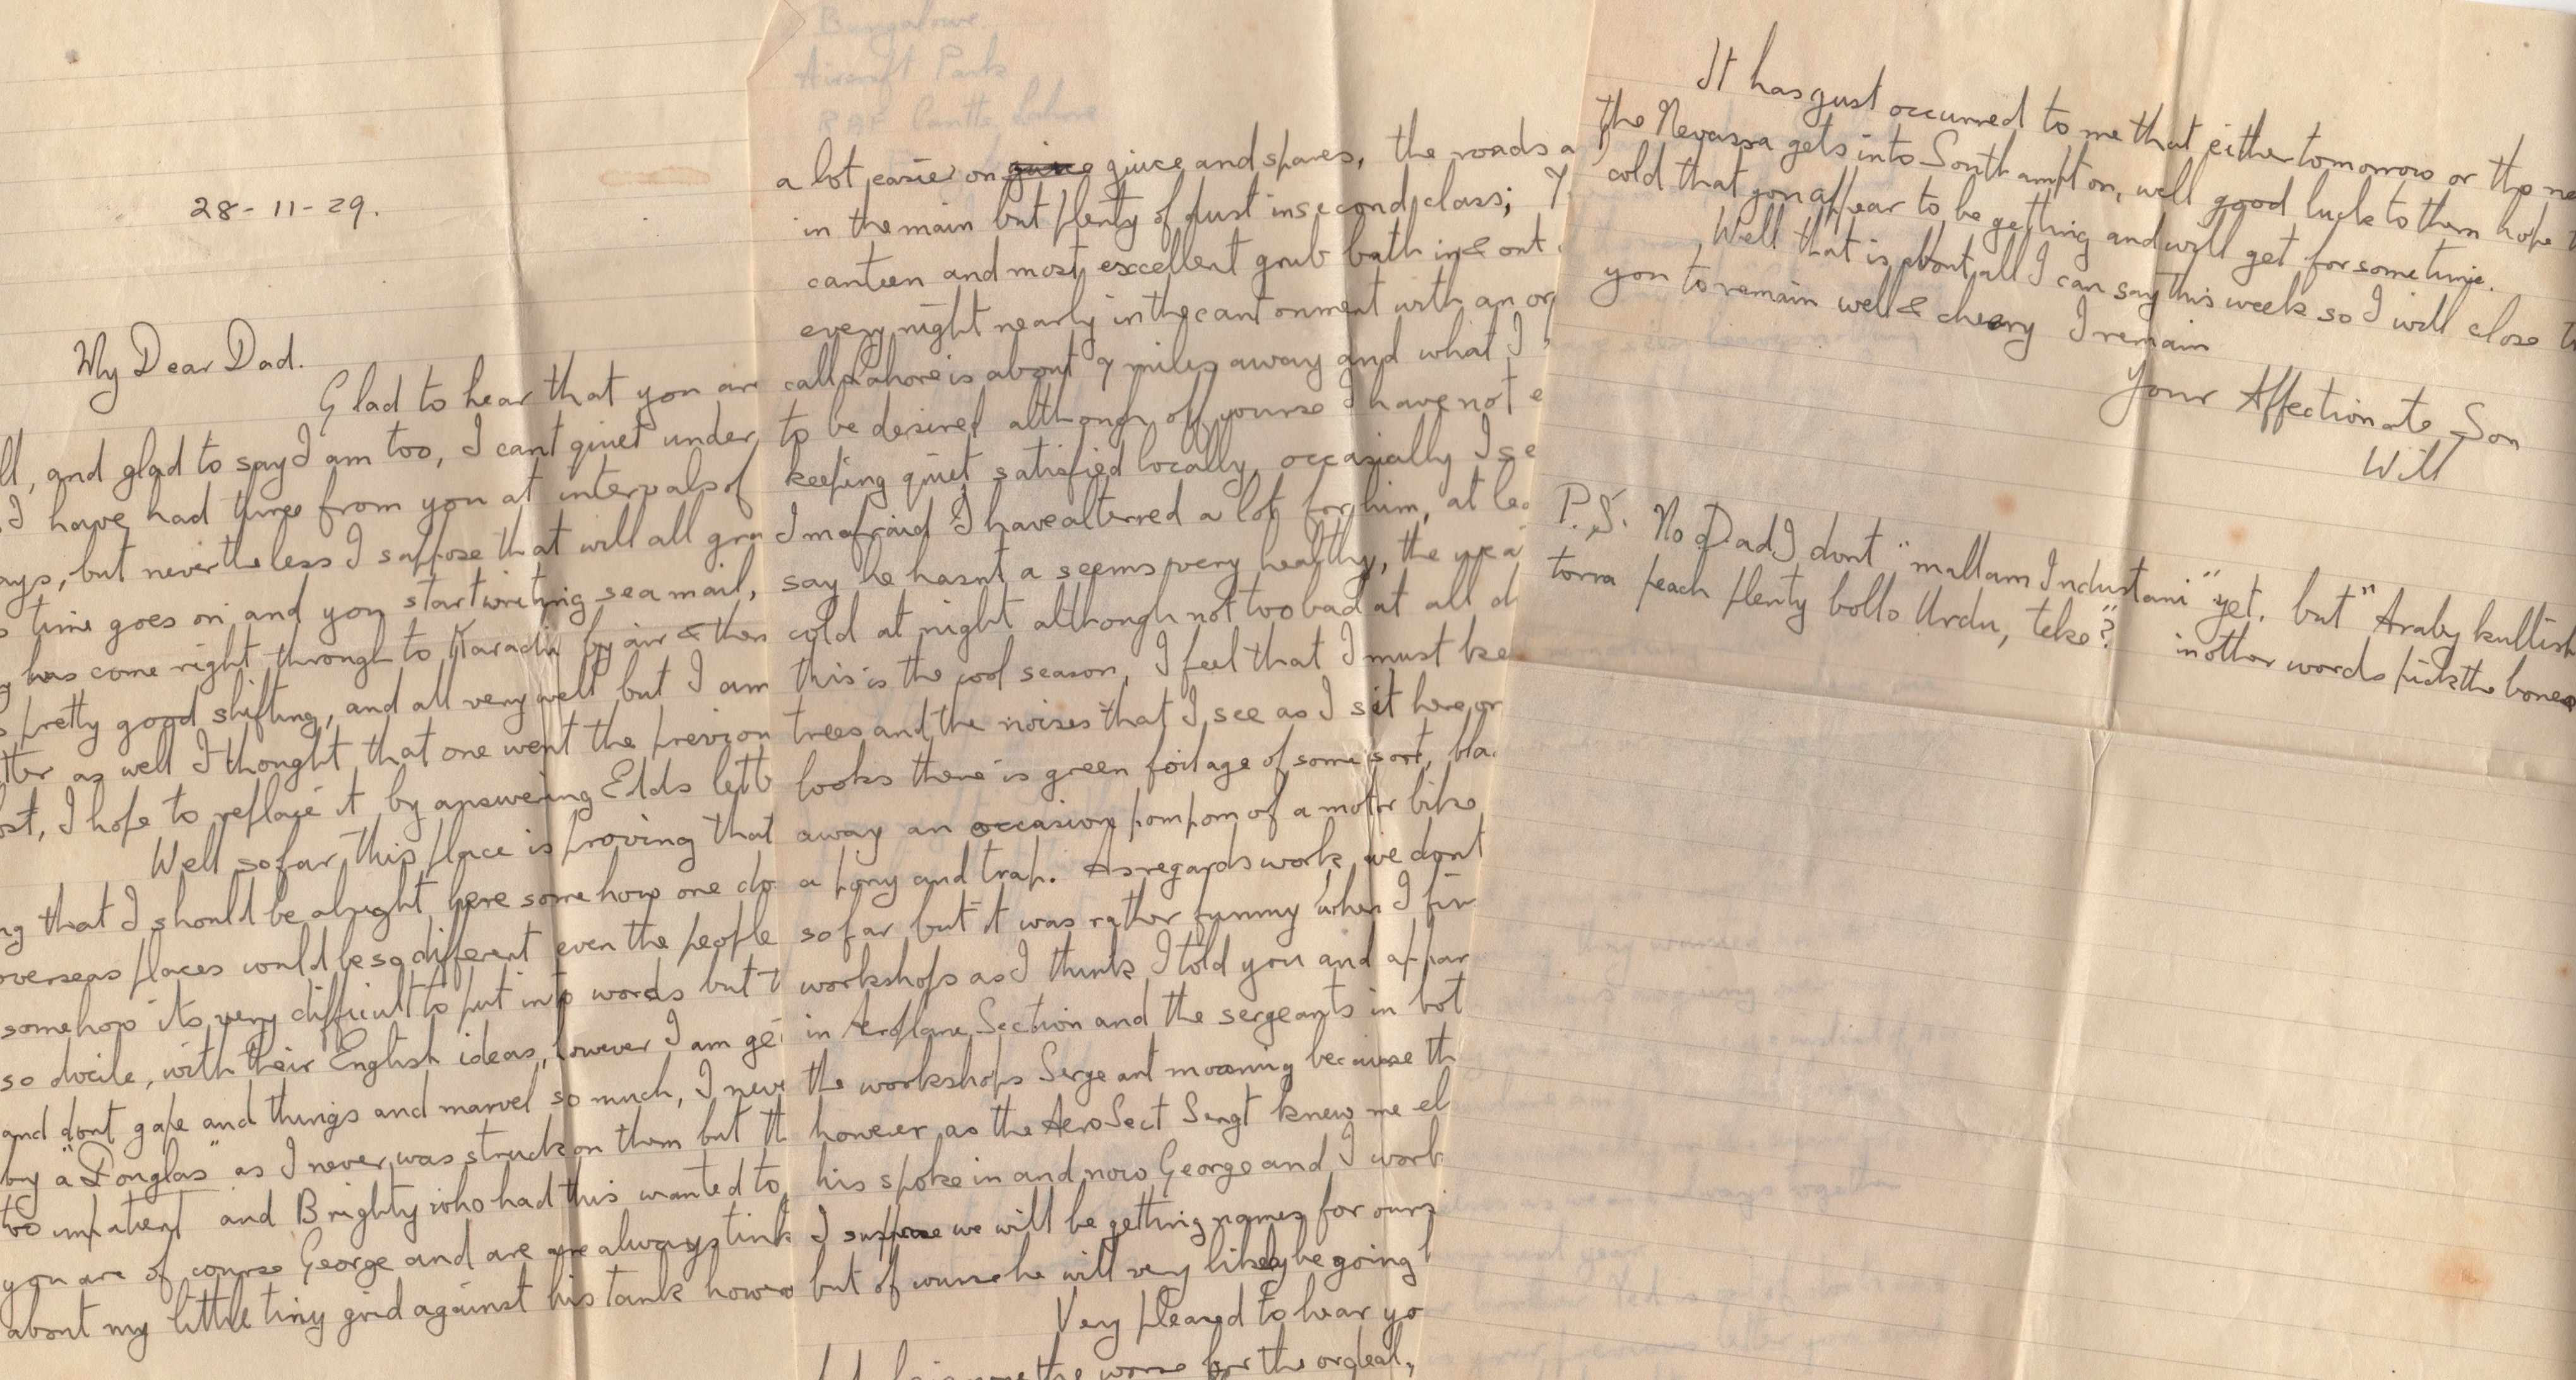 28-11-29.
My Dear Dad.
Glad to hear that you are
ll, and glad to say I am too, I cant quiet under
I have had three from you at intervals of
ays, but nevertheless I suppose that will all gra
s time goes on and you start writing sea mail,
g has come right through to Karachi by air & then
s pretty good shifting, and all very well but I am
tter as well I thought that one went the previou
ost, I hope to replace it by answering Elds lett
Well so far this place is proving that
ng that I should be alright here some how one do
overseas places could be so different even the people
somehow its very difficult to put into words but t
so docile, with their English ideas, however I am ge
and dont gape and things and marvel so much, I neve
by a "Douglas" as I never was struck on them but th
too impatient and Brighty who had this wanted to
you are of course George and are are always tink
about my little tiny grid against his tank howev
Bangalowe.
Aircraft Park
RAF Cantts, Lahore
a lot easier on giuce and spares, the roads a
in the main but plenty of dust in second class;
canteen and most excellent grub both in & out
every night nearly in the cantonment with an or
call Lahore is about 7 miles away and what I
to be desired although off yourse I have not e
keeping quiet satisfied locally, occasially I se
I'm afraid I have alterred a lot for him, at lea
say he hasnt a seems very healthy, the wea
cold at night although not too bad at all d
this is the cool season, I feel that I must ke
trees and the noises that I see as I sit here or
looks there is green foilage of some sort, bla
away an occasion pompom of a motor bike
a pony and trap. As regards work we dont
so far but it was rather funny when I fir
workshops as I think I told you and appar
in Aeroplane Section and the sergeants in bot
the workshops Sergeant moaning because th
however as the Aero Sect Sergt knew me el
his spoke in and now George and I work
I suppose we will be getting names for ours
but of course he will very likely be going
Very pleased to hear yo
the worse for the ordeal,
It has just occurred to me that either tomorrow or the ne
the Nevassa gets into Southampton, well good luck to them hope
cold that you appear to be getting and will get for some time.
Well that is about all I can say this week so I will close
you to remain well & cheery I remain
Your Affectionate Son
Will
P.S. No Dad I dont "mallam Industani" yet, but "Araby kullish
torra peach plenty bollo Urdu, teke?" in other words pick the bones